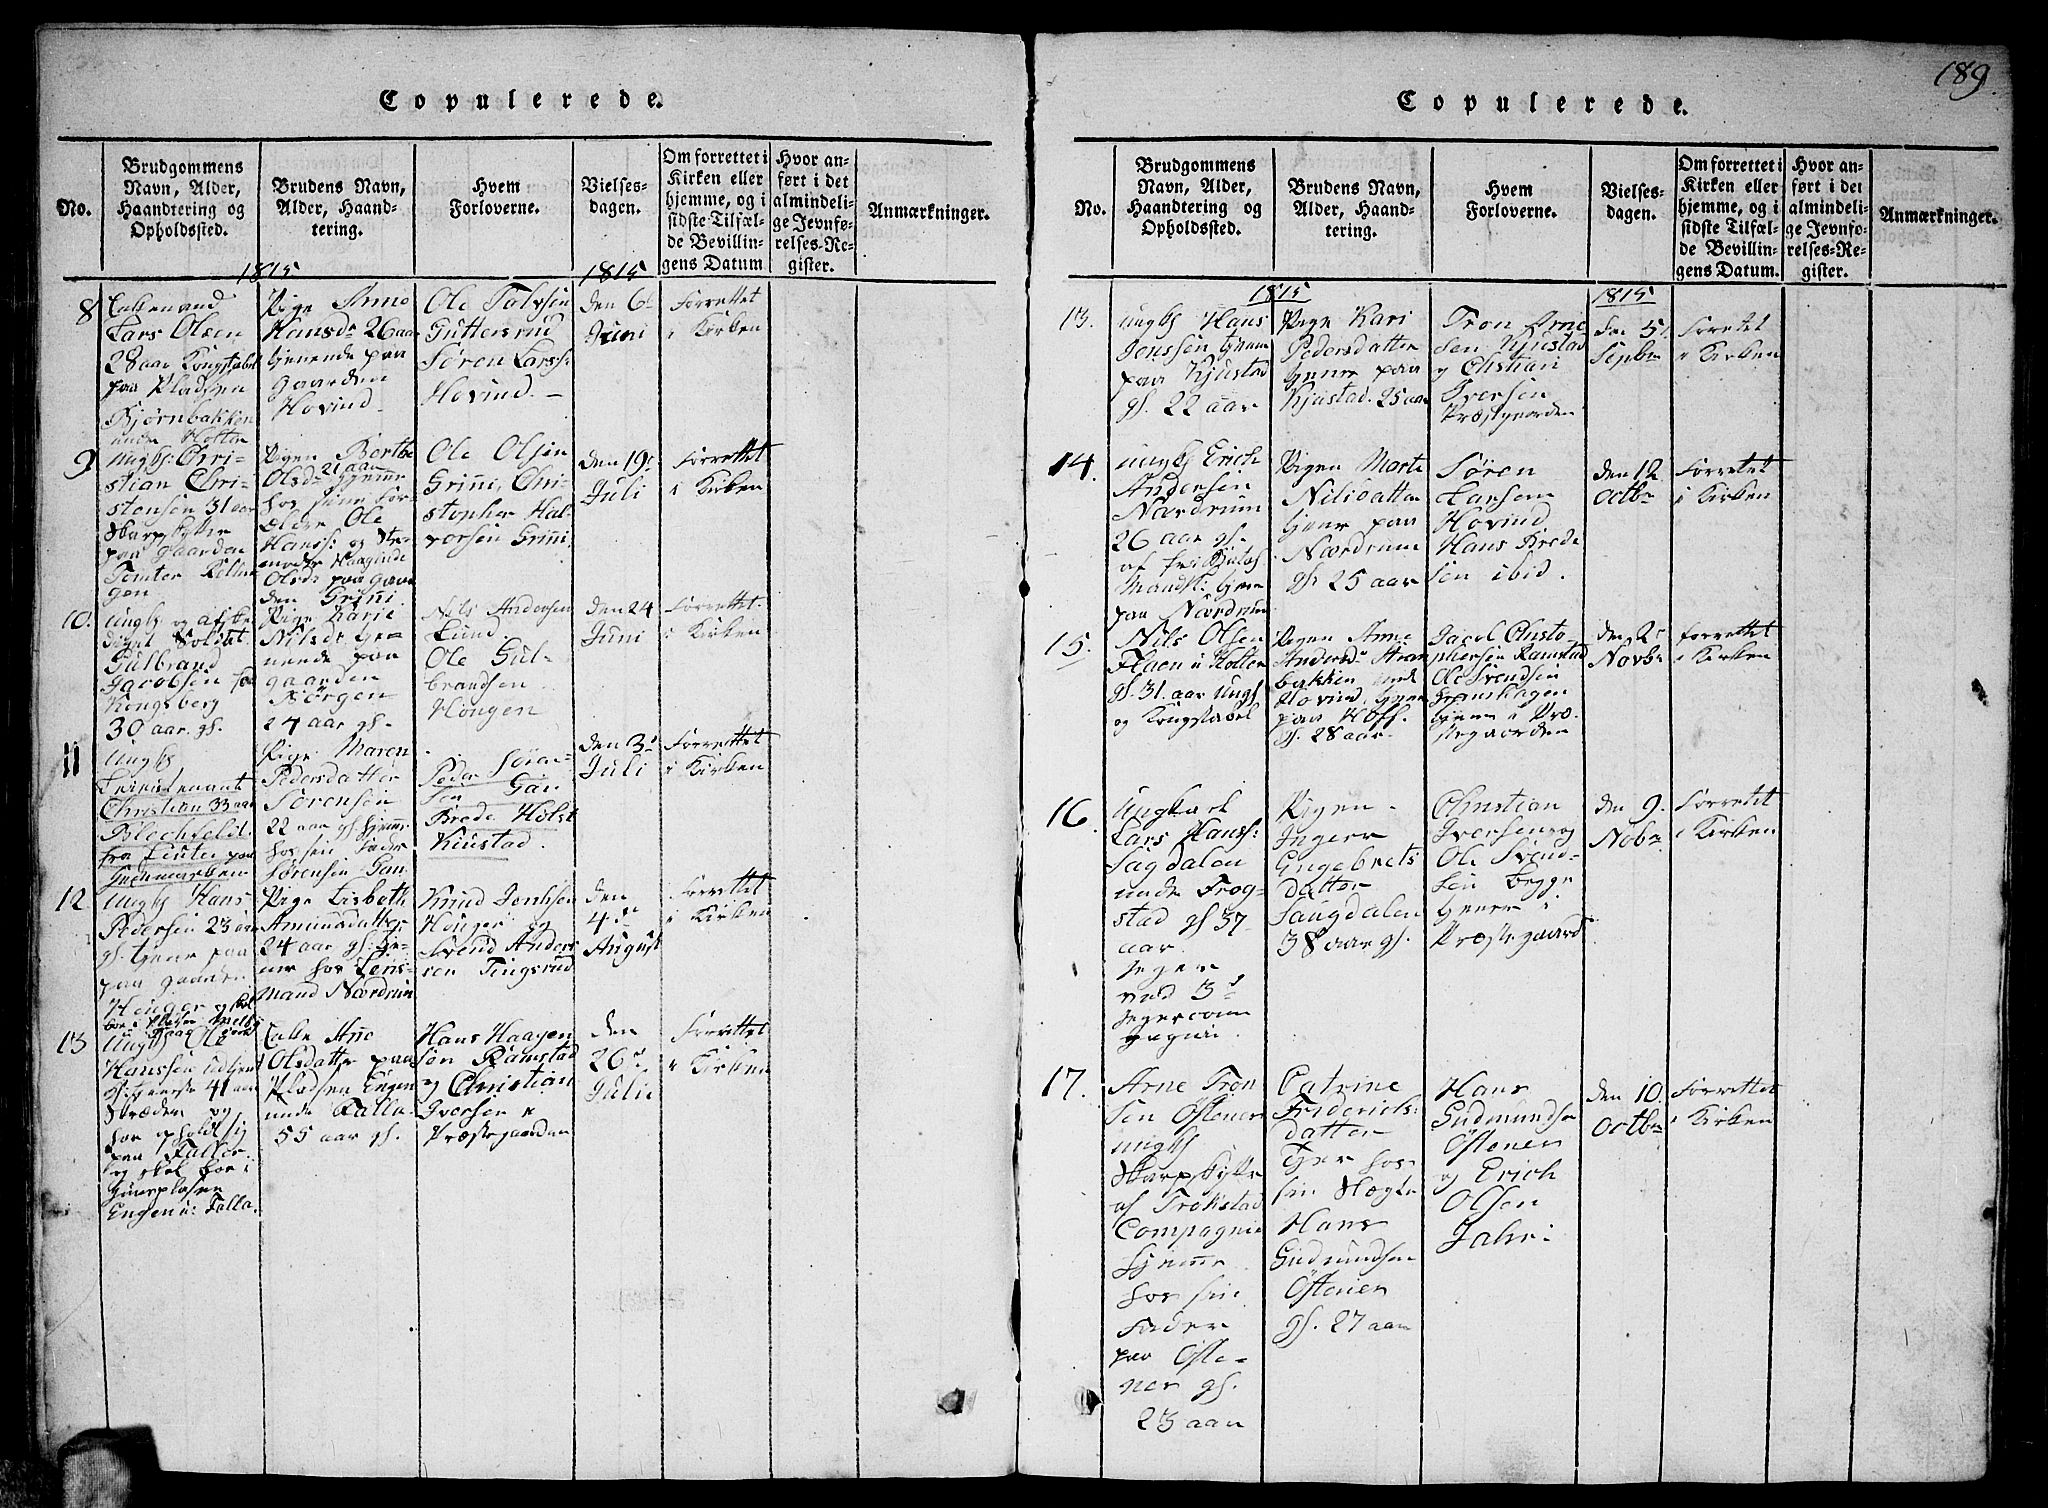 Copulerede.
No.
Brudgommens
Navn, Alder,
Haandtering og
Opholdssted.
Brudens Navn,
Alder, Haand-
tering.
Hvem
Forloverne.
Vielses-
dagen.
Om forrettet i
Kirken eller
hjemme, og i
sidste Tilfæl-
de Bevillin-
gens Datum
Hvor an-
ført i det
almindeli-
ge Jevnfø-
relses-Re-
gister.
Anmærkninger.
1815
1815
8
Enkemand
Lars Olsen
28 aar Kongstabel
paa Pladsen
Bjørnbakken
unde Holter
Pige Anne
Hansdr 26 aar
tjenende paa
Gaarden
Hovind
Ole
Guttersrud
Søren Larss:
Hovind. –
den 6
Juni
Forrettet
i Kirken
9
Ungk: Chri-
stian Chri-
stensen 31 aar
Skarpskytte
paa Gaarden
Tomter
Pigen Berthe
Olsdr 21 aar hjemme
hos sine For-
ældre Ole
Hanss: og
Olsdr paa Gaar
den Grini
Ole Olsen
Grini, Chri-
stopher Hal-
vorsen Grini
den 19
Juli
Forrettet
i Kirken
10.
Ungk og afske
diget Soldat
Gulbrand
Jacobsen
Kongsberg
30 aar. gl.
Pige Karie
Nilsdr tje-
nende paa
gaarden
Børgen
24 aar gl.
Nils Andersen
Lund
Ole Gul-
brandsen
Hongen
den 24
Juni
Forrettet
i Kirken
11
Ungk
Christian 33 aar
Blechfeldt
fra
Pige Maren
Pedersdatter
Sørensen
22 aar gl hjemme
hos sin Fader
Sørensen Gan
Peder Søren-
sen Gan
Brede Holst
Kiustad.
den 3
Juli
Forrettet
i Kirken
12
Ungk Hans
Pedersen 23 aar
gl. tjener paa
paa gaarden
Pige Lisbeth
Amundsdatter
24 aar gl: tje-
ner hos Lens-
mand Nærdrum
Knud
Honger og
Svend Anders
sen Tingsrud
den
4de
August
Forrettet
i Kirken
13
Ungk Ole
Hanssen
41 aar
Skræder og
har opholdt sig
paa Falla
og skal boe i
Engen u: Falla.
Enke Anne
Olsdatter paa
Pladsen Engen
unde Falla
55 aar gl.
Hans Haagen
sen Ramstad
og Christian
Iversen
Præstegaarden
den
26
Juli
Forrettet
i Kirken
189.
Copulerede.
No.
Brudgommens
Navn, Alder,
Haandtering og
Opholdssted.
Brudens Navn,
Alder, Haand-
tering.
Hvem
Forloverne.
Vielses-
dagen.
Om forrettet i
Kirken eller
hjemme, og i
sidste Tilfæl-
de Bevillin-
gens Datum.
Hvor an-
ført i det
almindeli-
ge Jevnfø-
relses-Re-
gister.
Anmærkninger.
1815
1815
13.
Ungk Hans
Jenssen tjener
paa Kjustad
gl. 22 aar
Pige Kari
Pedersdatter
tjener paa
Kjustad. 25 aar
Tron Arne
sen Kjustad
og Christian
Iversen
Præstgaarden
den 5
Septbr
Forrettet
i Kirken
14.
Ungk Erich
Andersen
Nærdrum
26 aar gl.
paa Nærdrum
Pigen Marte
Nilsdatter
tjener paa
Nærdrum
gl. 25 aar
Søren
Larsen
Hovind
Hans Brede
sen ibid.
den 12
Octbr
Forrettet
i Kirken
15.
Nils Olsen
Floen u Holter
gl. 31. aar Ungk
og Kongstabel
Pigen Anne
Andersdr
bakken und
Hovind, tjener
paa Hoff.
gl. 28 aar.
Jacob Christo-
phersen Ramstad
Ole Svendsen
tjener i Præ-
stegaarden
den 2
Novbr
Forrettet
i Kirken
16.
Ungkarl
Lars Hanss:
Sagdalen
unde Frog-
stad gl 37
aar.
Jeger
ved 3d
Pigen –
Inger
Engebrets
datter
Saugdalen
38 aar gl.
Christian
Iversen og
Ole Svend-
sen begge
tjener i
Præstegaard
den 9.
Nobr
Forrettet
i Kirken
17.
Arne Tron
sen Østener
ungk
Skarpskytte
af Trøkstad
Compagnie
hjemme
hos sin
Fader
paa Øste-
ner gl.
23 aar
Catrine
Friderichs-
datter
Tjener hos
sin
Hans
Gudmundsen
Østener
gl. 27 aar
Hans
Gudmundsen
Østener
og Erich
Olsen
Jahr:
den 10.
Octbr
Forrettet
i Kirken